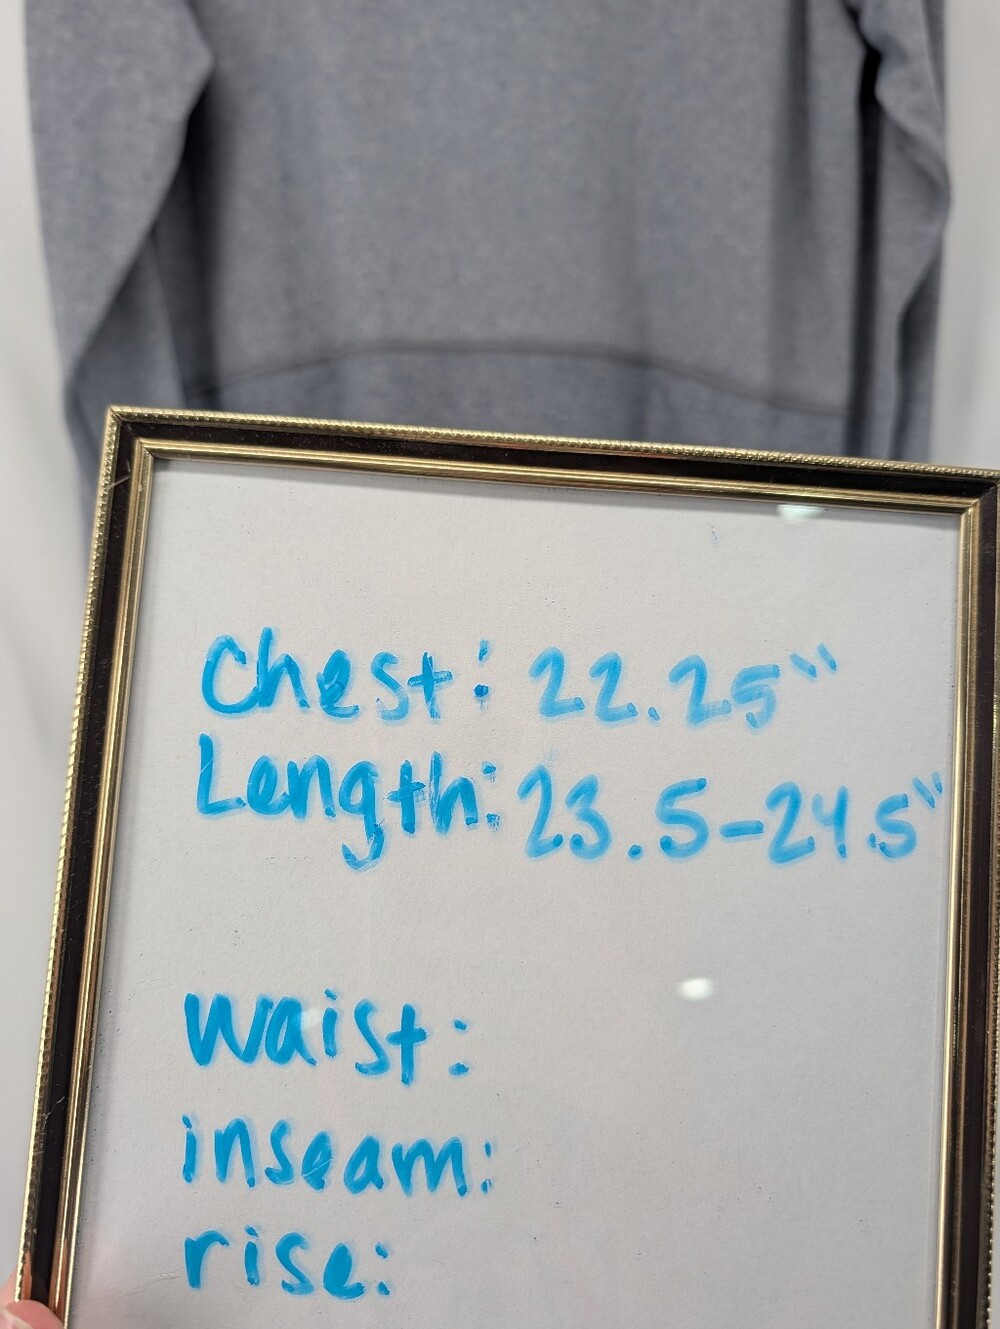 Chest: 22.25"
Length: 23.5-24.5"
waist:
inseam:
rise: